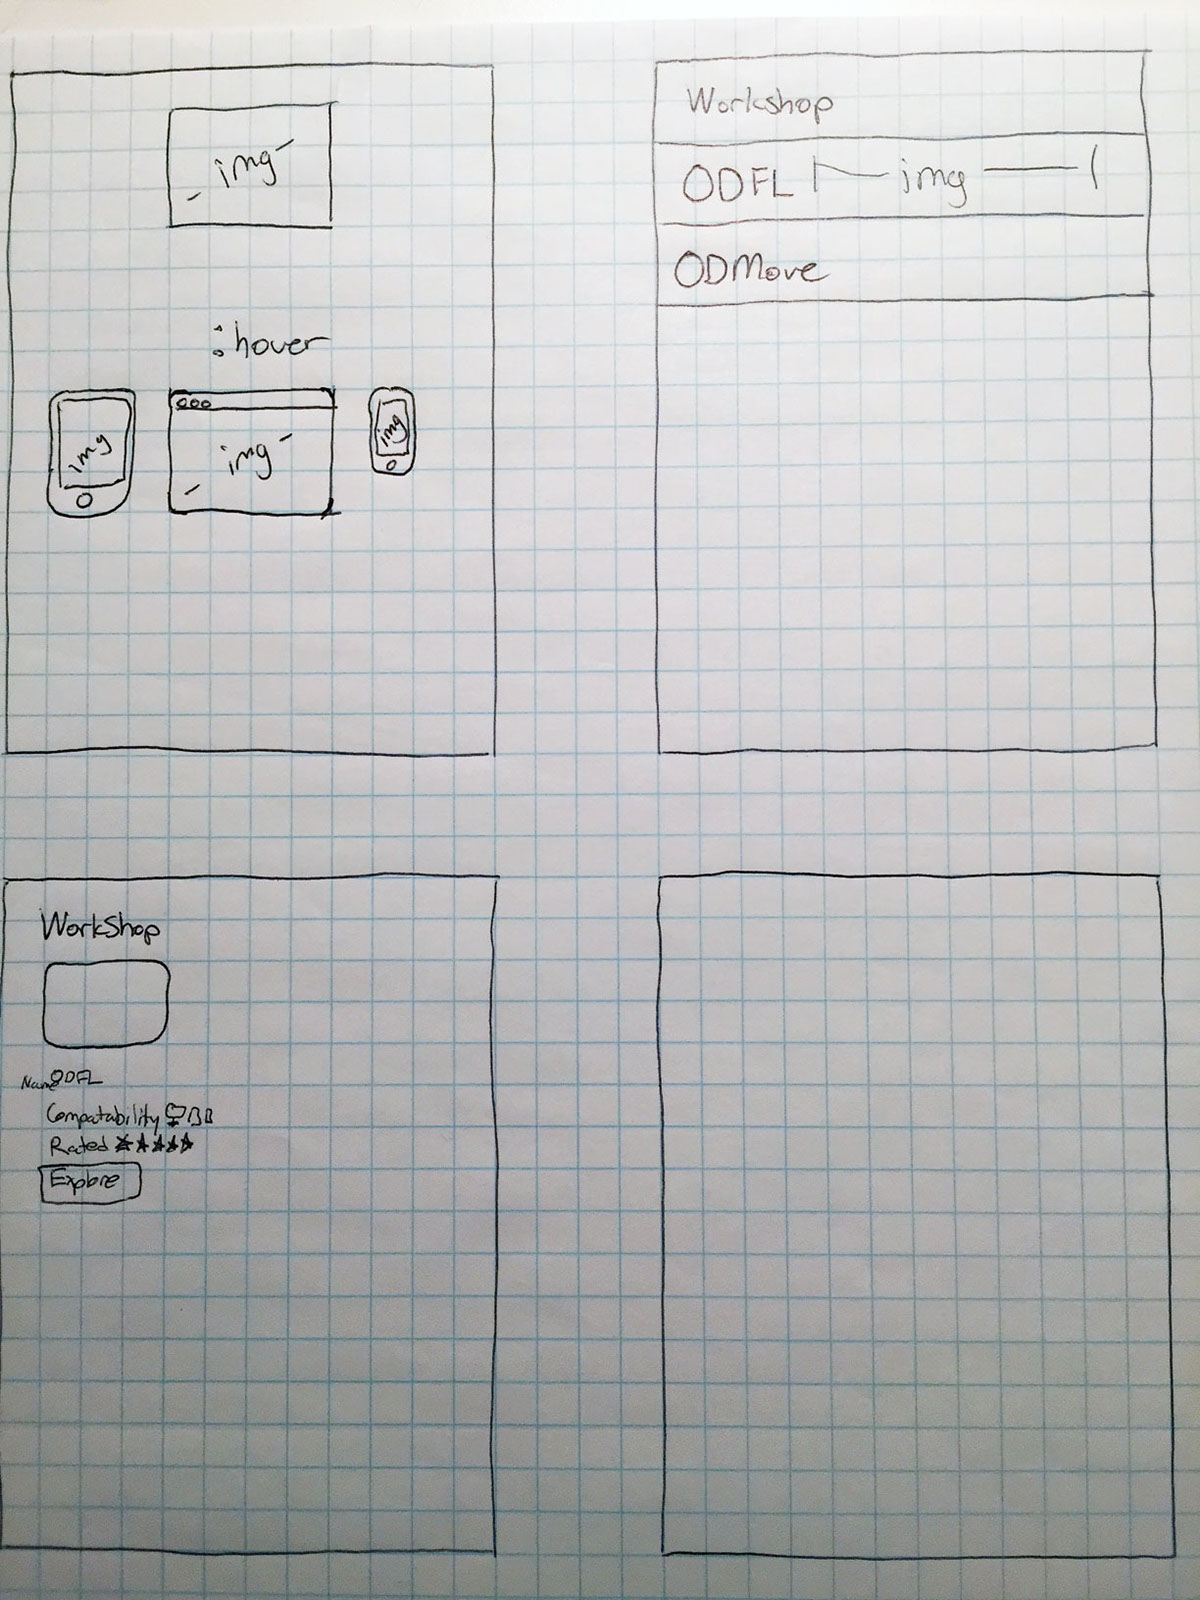 img
:hover
img
img
img
Workshop
ODFL img
ODMove
WorkShop
Name ODFL
Compatability
Rated
Explore